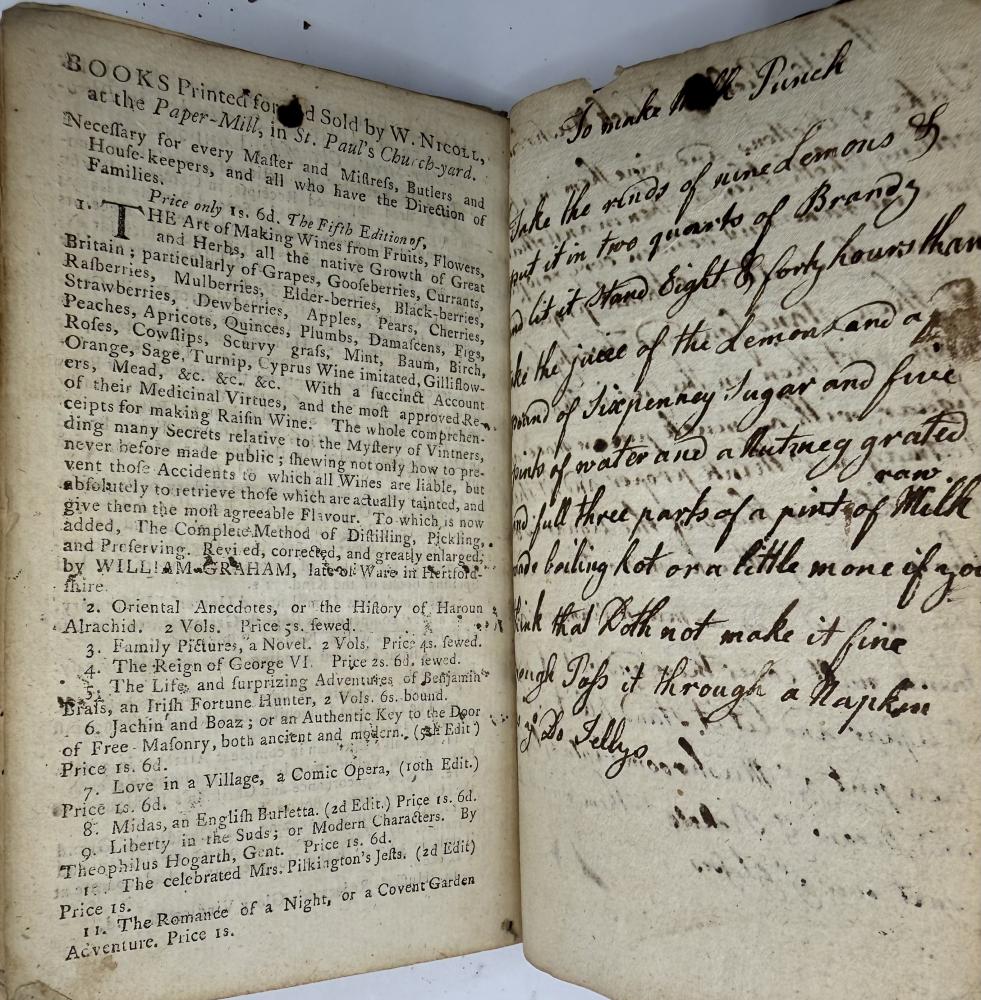 BOOKS Printed for and Sold by W. NICOLL,
at the Paper-Mill, in St. Paul's Church-yard.
Neceſſary for every Maſter and Miſtreſs, Butlers and
Houſe-keepers, and all who have the Direction of
Families.
Price only 1s. 6d. The Fifth Edition of,
1. THE Art of Making Wines from Fruits, Flowers,
and Herbs, all the native Growth of Great
Britain; particularly of Grapes, Gooſeberries, Currants,
Raſberries, Mulberries, Elder-berries, Black-berries,
Strawberries, Dewberries, Apples, Pears, Cherries,
Peaches, Apricots, Quinces, Plumbs, Damaſcens, Figs,
Roſes, Cowſlips, Scurvy graſs, Mint, Baum, Birch,
Orange, Sage, Turnip, Cyprus Wine imitated, Gilliflow-
ers, Mead, &c. &c. &c. With a ſuccinct Account
of their Medicinal Virtues, and the moſt approved Re-
ceipts for making Raiſin Wine. The whole comprehen-
ding many Secrets relative to the Myſtery of Vintners,
never before made public; ſhewing not only how to pre-
vent thoſe Accidents to which all Wines are liable, but
abſolutely to retrieve thoſe which are actually tainted, and
give them the moſt agreeable Flavour. To which is now
added, The Complete Method of Diſtilling, Pickling,
and Preſerving. Reviſed, corrected, and greatly enlarged;
by WILLIAM GRAHAM, late of Ware in Hertford-
ſhire.
2. Oriental Anecdotes, or the Hiſtory of Haroun
Alrachid. 2 Vols. Price 5s. ſewed.
3. Family Pictures, a Novel. 2 Vols. Price 4s. ſewed.
4. The Reign of George VI. Price 2s. 6d. ſewed.
5. The Life and ſurprizing Adventures of Benjamin
Braſs, an Iriſh Fortune Hunter, 2 Vols. 6s. bound.
6. Jachin and Boaz; or an Authentic Key to the Door
of Free-Maſonry, both ancient and modern. (5th Edit)
Price 1s. 6d.
7. Love in a Village, a Comic Opera, (10th Edit.)
Price 1s. 6d.
8. Midas, an Engliſh Burletta. (2d Edit.) Price 1s. 6d.
9. Liberty in the Suds; or Modern Characters. By
Theophilus Hogarth, Gent. Price 1s. 6d.
10. The celebrated Mrs. Pilkington's Jeſts. (2d Edit)
Price 1s.
11. The Romance of a Night, or a Covent Garden
Adventure. Price 1s.
To make Milk Punch
Take the rinds of nine Lemons &
put it in two quarts of Brandy
and lit it Stand Eight & forty hours than
take the juice of the Lemons and a
pound of Sixpenney Sugar and five
pints of water and a Nutmeg grated
and full three parts of a pint of raw Milk
made boiling hot or a little more if you
think that Doth not make it fine
enough Paſs it through a Napkin
as yͤ Do Jellys